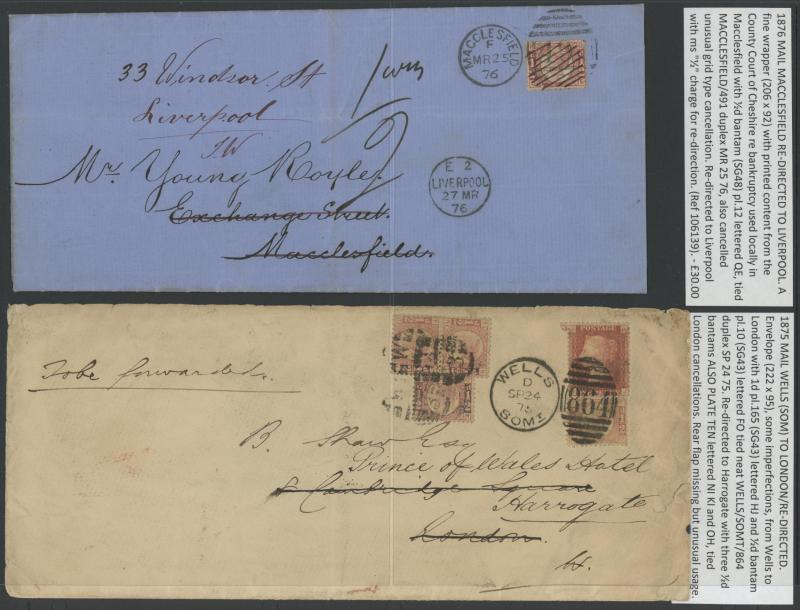 MACCLESFIELD
F
MR 25
76
33 Windsor St
Liverpool
S.W
Mr. Young Royle
Exchange Street.
Macclesfield.
E 2
LIVERPOOL
27 MR
76
1876 MAIL MACCLESFIELD RE-DIRECTED TO LIVERPOOL. A
fine wrapper (206 x 92) with printed content from the
County Court of Cheshire re bankruptcy used locally in
Macclesfield with ½d bantam (SG48) pl.12 lettered QE, tied
MACCLESFIELD/491 duplex MR 25 76, also cancelled
unusual grid type cancellation. Re-directed to Liverpool
with ms "½" charge for re-direction. (Ref 106139). - £30.00
To be forwarded.
WELLS
D
SP 24
75
SOMT
POSTAGE
864
B. Shaw Esq
Prince of Wales Hotel
8 Cambridge Square
Harrogate
London.
W.
1875 MAIL WELLS (SOM) TO LONDON/RE-DIRECTED.
Envelope (222 x 95), some imperfections, from Wells to
London with 1d pl.165 (SG43) lettered HJ and ½d bantam
pl.10 (SG43) lettered FO tied neat WELLS/SOMT/864
duplex SP 24 75. Re-directed to Harrogate with three ½d
bantams ALSO PLATE TEN lettered NI KI and OH, tied
London cancellations. Rear flap missing but unusual usage.